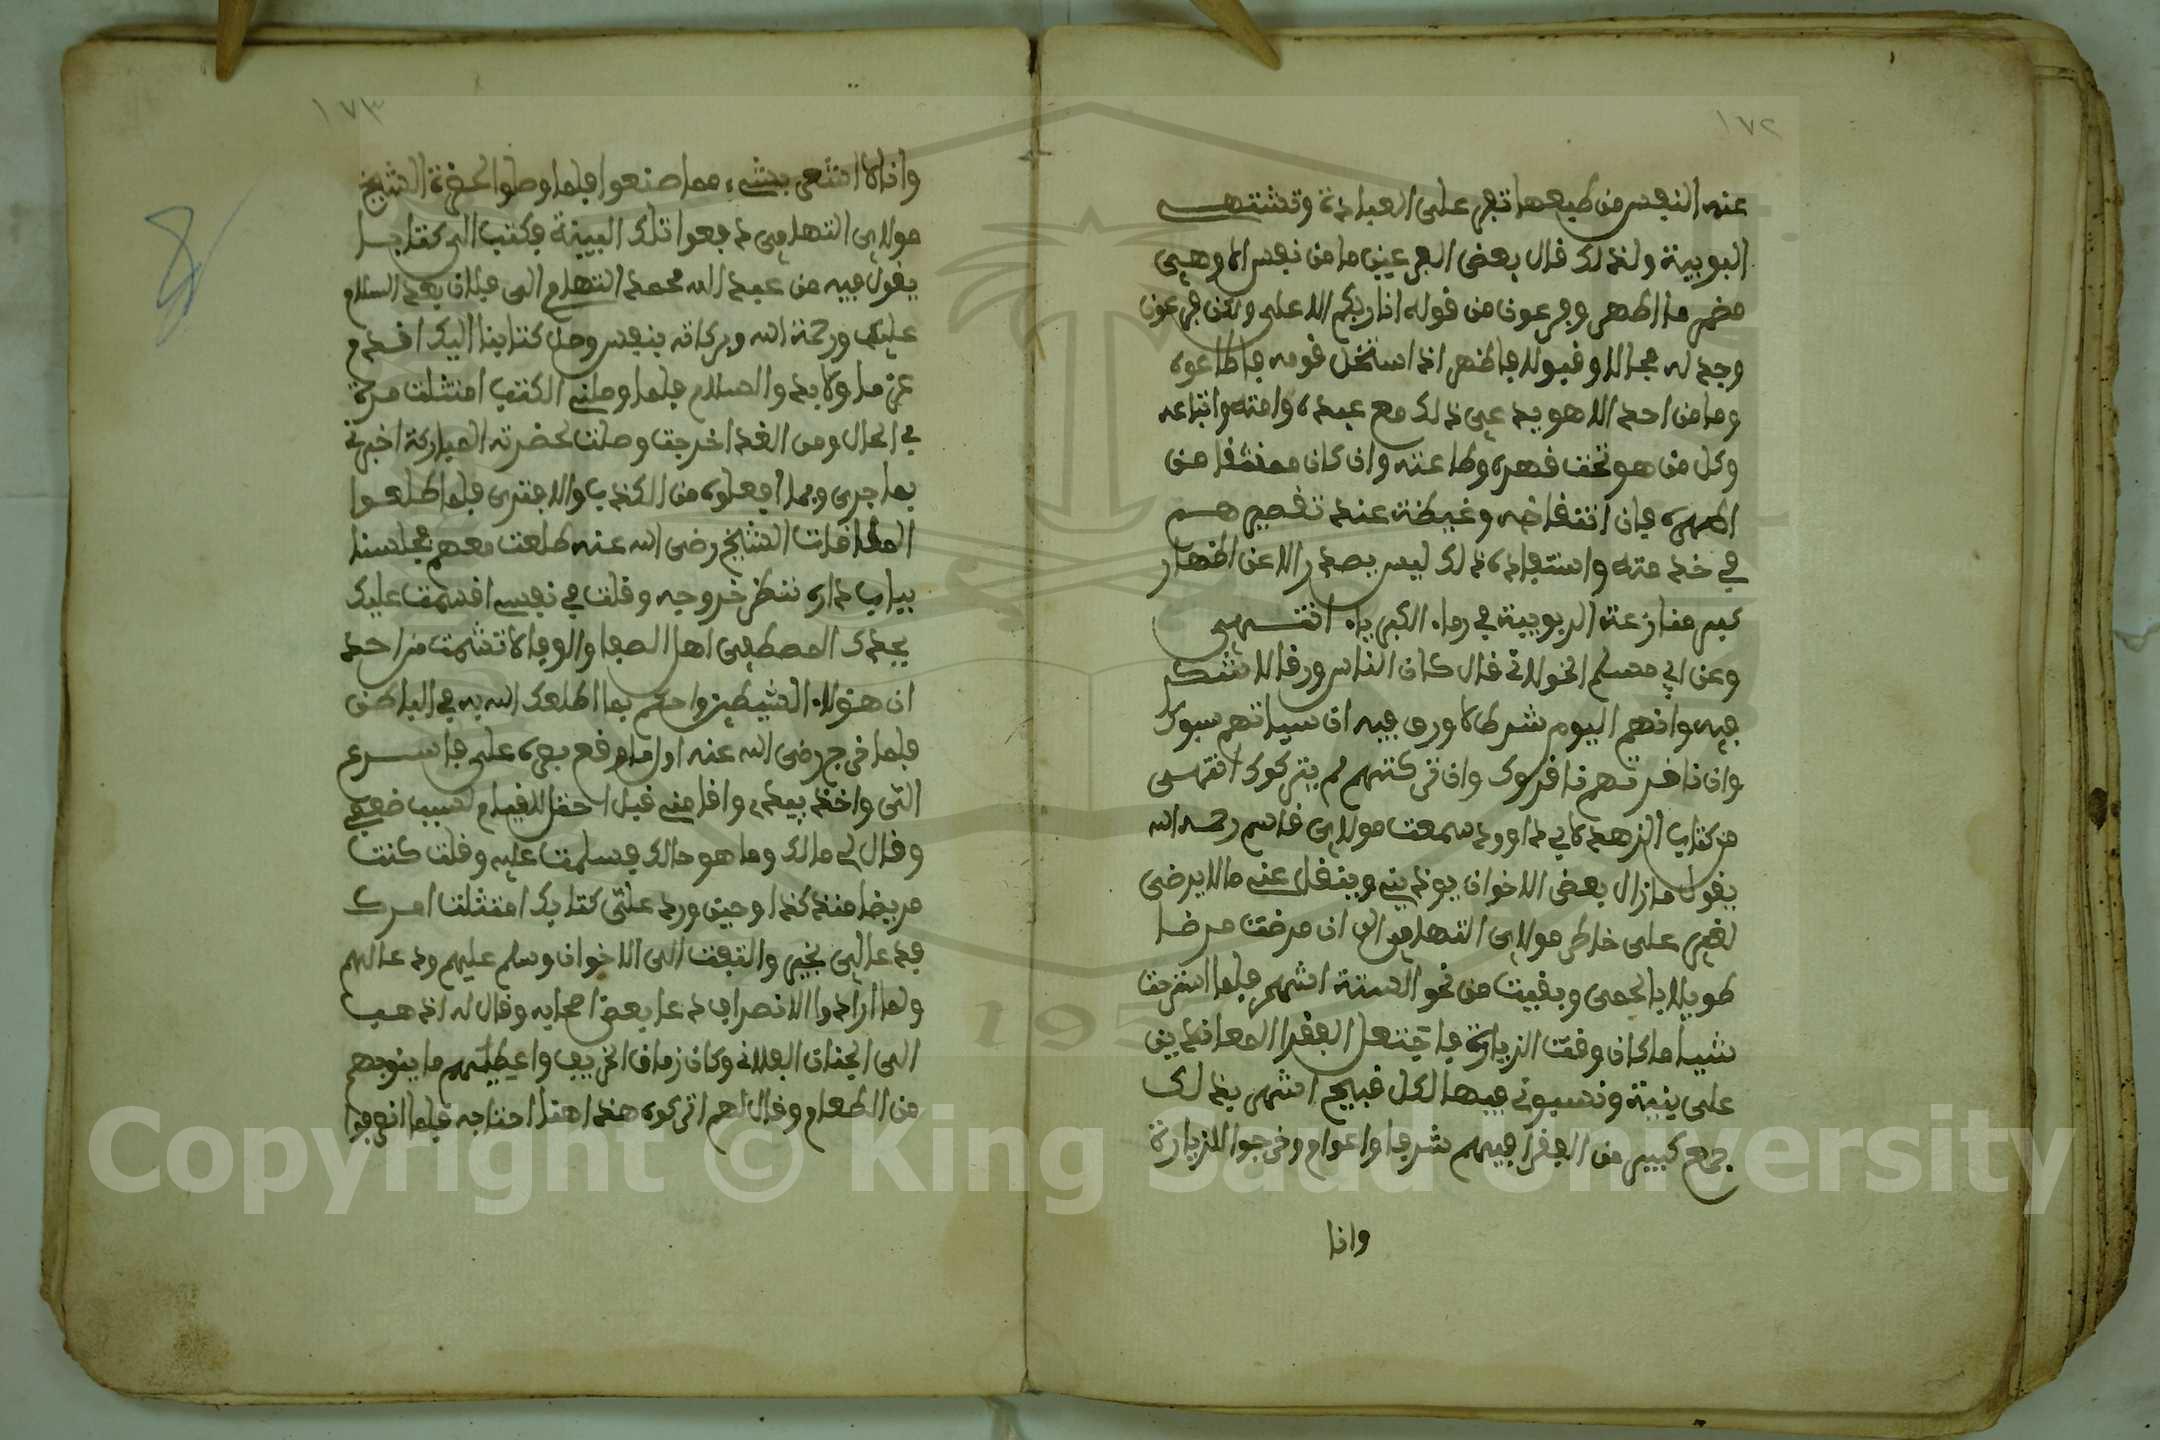 ١٧٢
عنه النفس من طبعها تفر على العبادة وتشتهي
الربوبية ولذلك قال بعض العارفين ما من نفس الا وهي
مضمر ما اظهر وفرعون من قوله انا ربكم الاعلى ولكن فرعون
وجد له مجالا وقبولا فاظهر اذ استخف قومه فاطاعوه
وما من احد الا هو يدعي ذلك مع عبده وامته واتباعه
وكل من هو تحت قهره وطاعته وان كان ممتنعا من
اظهاره فان امتعاضه وغيظه عند تقصيرهم
في خدمته واستبعاده ذلك ليس يصدر الا عن اظهار
كبر منازعة الربوبية في رداء الكبرياء انتهى
وعن ابي مسلم الخولاني قال كان الناس ورقا لا شوك
فيه وانهم اليوم شوك لا ورق فيه ان سيبتهم سبوك
وان ناقدتهم ناقدوك وان تركتهم لم يتركوك انتهى
من كتاب الزهد لابي داوود سمعت مولاي قاسم رحمه الله
يقول ما زال بعض الاخوان يوذيني وينقل عني ما لا يرضى
لتغيير على خاطر مولاي التهامي الى ان مرضت مرضا
طويلا بالحمى وبقيت من نحو الستة اشهر فلما استرحت
شيا ما كان وقت الزيارة فاجتمع الفقرا المعاندين
على بينة ونسبوني فيها لكل قبيح اشهر بذلك
جمع كبير من الفقرا فيهم شرفا واعوام وخرجوا للزيارة
وانا
١٧٣
وانا لا اشعر بشيء مما صنعوا فلما وصلوا لحضرة الشيخ
مولاي التهامي دفعوا تلك البينة فكتب الي كتابا
يقول فيه من عبد الله محمد التهامي الى فلان بعد السلام
عليك ورحمة الله وبركاته بنفس وصول كتابنا اليك اقدم
عزما ولا بد والسلام فلما وصلني الكتاب امتثلت امره
في الحال ومن الغد اخرجت وصلت لحضرته المباركة اخبرني
بما جرى وبما فعلوه من الكذب والافترى فلما طلعوا
لملاقات الشيخ رضي الله عنه طلعت معهم فجلسنا
بباب داره ننتظر خروجه وقلت في نفسي اقسمت عليك
بجدك المصطفى اهل الصفا والوفا لا تشمت من احد
ان هؤلاء الشيطين واحكم بما اطلعك الله به في الباطن
فلما خرج رضي الله عنه اول ما وقع بصره علي فاسرع
الي واخذ بيدي واقامني قبل احتفال لقيام لسبب ضعفي
وقال لي مالك وما هو حالك فسلمت عليه وقلت كنت
مريضا منذ كذا وحين ورد علي كتابك امتثلت امرك
فدعا لي بخير والتفت الى الاخوان وسلم عليهم ودعا لهم
ولما ارادوا الانصراف دعا بعض اصحابه وقال له اذهب
الى الجنان الفلاني وكان زمان الخريف واعطيهم ما ينوبهم
من الطعام وقال لهم اتركوه هنا هذا احتاجه فلما انصرفوا
Copyright © King Saud University
195